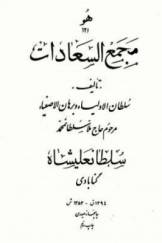 هو
۱۲۱
مجمع السعادات
تألیف
سلطان الاولیاء و برهان الاصفیاء
مرحوم حاج ملا سلطانمحمد
سلطانعلیشاه
گنابادی